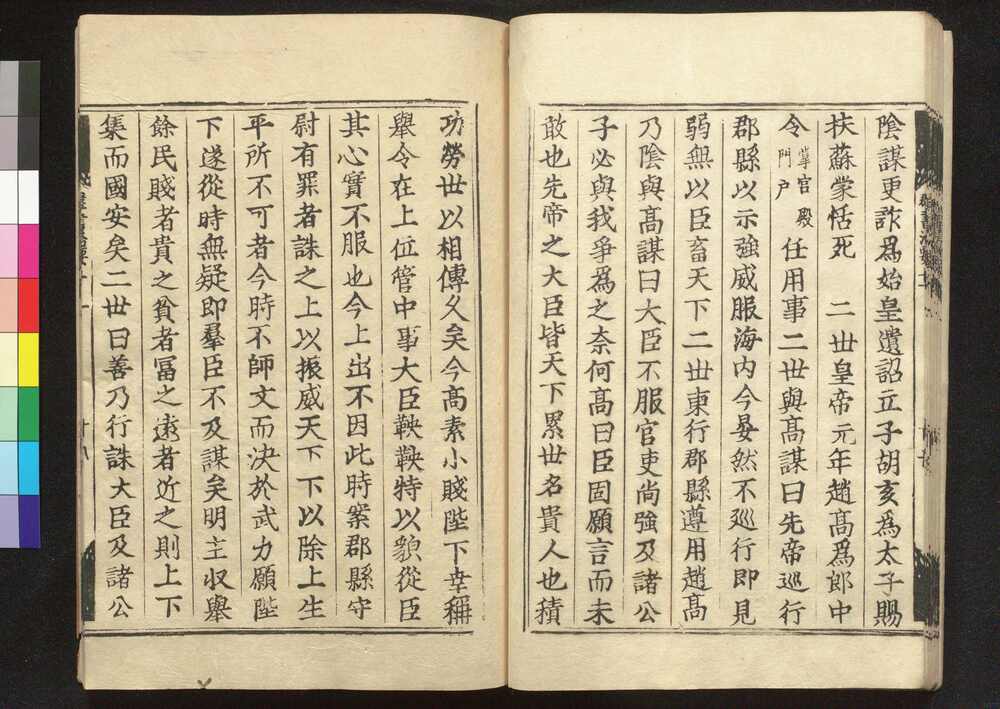 陰謀更詐為始皇遺詔立子胡亥為太子賜
扶蘇蒙恬死　二世皇帝元年趙髙為郎中
令掌官殿門户任用事二世與髙謀曰先帝巡行
郡縣以示強威服海内今晏然不巡行即見
弱無以臣畜天下二世東行郡縣遵用趙髙
乃陰與髙謀曰大臣不服官吏尚強及諸公
子必與我爭為之奈何髙曰臣固願言而未
敢也先帝之大臣皆天下累世名貴人也積
功勞世以相傳久矣今髙素小賤陛下幸稱
舉令在上位管中事大臣鞅鞅特以貌從臣
其心實不服也今上出不因此時案郡縣守
尉有罪者誅之上以振威天下下以除上生
平所不可者今時不師文而決於武力願陛
下遂從時無疑即羣臣不及謀矣明主収舉
餘民賤者貴之貧者冨之逺者近之則上下
集而國安矣二世曰善乃行誅大臣及諸公